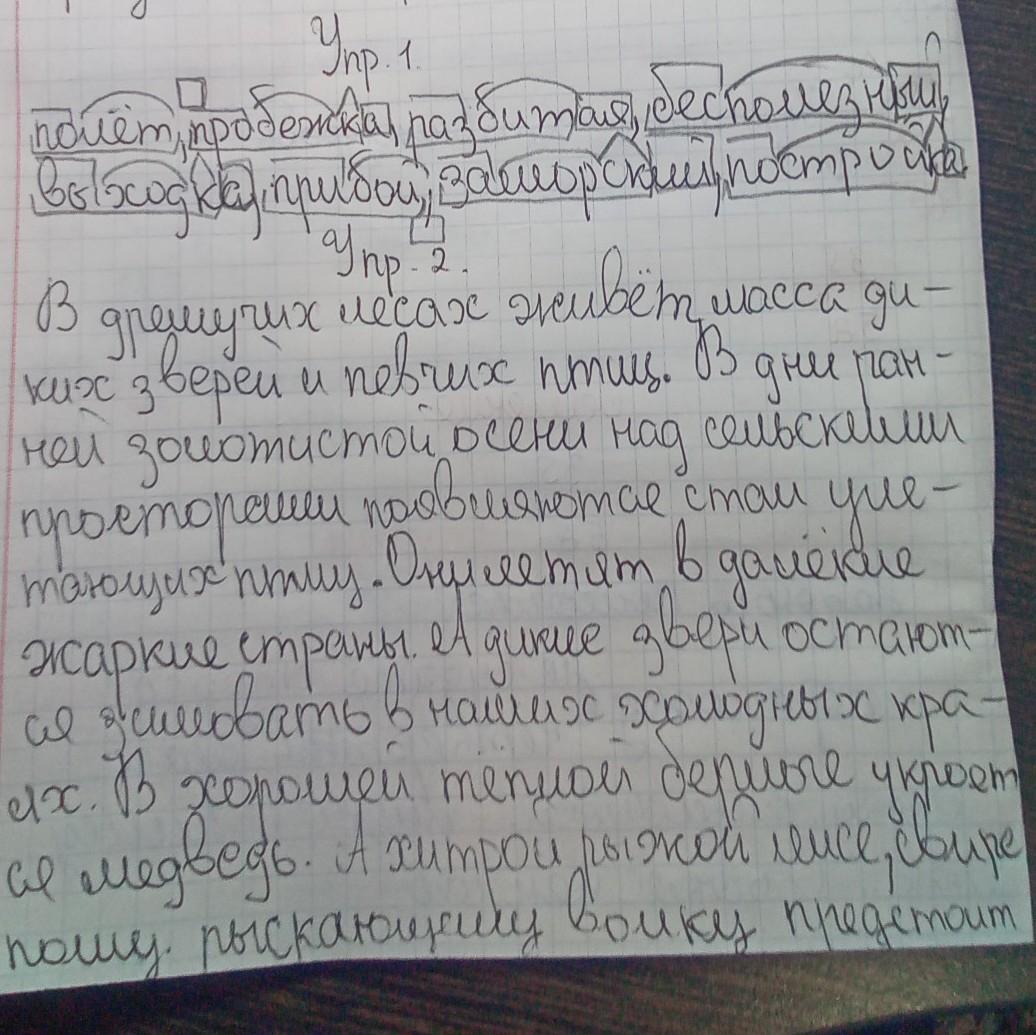 Упр. 1.
полёт, пробежка, разбитая, бесполезный,
высодка, прибой, заморский, постройка
Упр. 2.
В дремучих лесах живёт масса ди-
ких зверей и певчих птиц. В дни ран-
ней золотистой осени над сельскими
просторами появляются стаи уле-
тающих птиц. Они летят в далёкие
жаркие страны. А дикие звери остают-
ся зимовать в наших холодных кра-
ях. В хорошей тёплой берлоге укроет
ся медведь. А хитрой рыжой лисе, свире
пому рыскающему волку предстоит